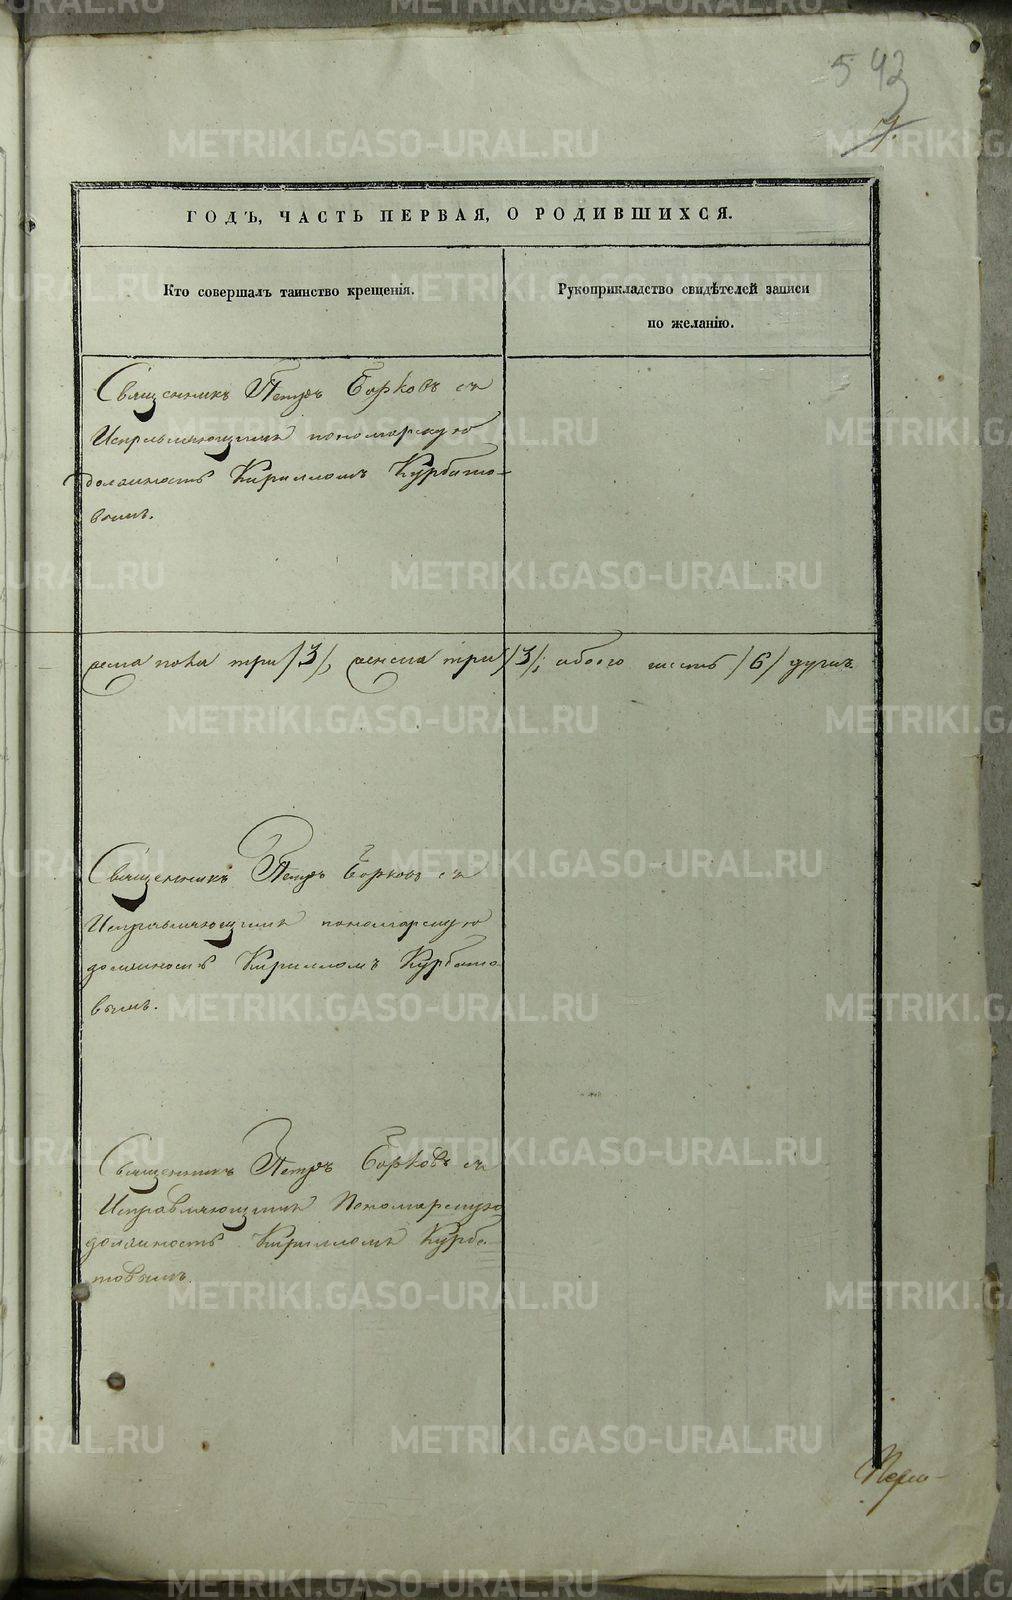 542
7.
ГОДЪ, ЧАСТЬ ПЕРВАЯ, О РОДИВШИХСЯ.
Кто совершалъ таинство крещенія.
Рукоприкладство свидѣтелей записи
по желанію.
Священникъ Петръ Борковъ съ
Исправляющимъ пономарскую
должность Кирилломъ Курбато-
вымъ.
пола три /3/, женска три /3/; обоего шесть /6/ душъ.
Священникъ Петръ Борковъ съ
Исправляющимъ пономарскую
должность Кирилломъ Курбато-
вымъ.
Священникъ Петръ Борковъ съ
Исправляющимъ Пономарскую
должность Кирилломъ Курба-
товымъ.
METRIKI.GASO-URAL.RU